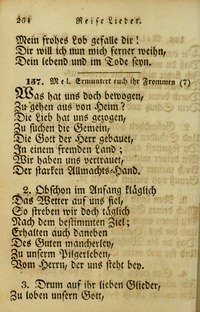 264 Reise Lieder.
Mein frohes Lob gefalle dir!
Dir will ich nun mich ferner weihn,
Dein lebend und im Tode seyn.
157. Mel. Ermuntert euch ihr Frommen (7)
Was hat uns doch bewogen,
Zu gehen aus von Heim?
Die Lieb hat uns gezogen,
Zu suchen die Gemein,
Die Gott der Herr gebauet,
In einem fremden Land;
Wir haben uns vertrauet,
Der starken Allmachts-Hand.
2. Obschon im Anfang kläglich
Das Wetter auf uns fiel,
So streben wir doch täglich
Nach dem bestimmten Ziel;
Erhalten auch daneben
Des Guten mancherley,
Zu unserm Pilgerleben,
Vom Herrn, der uns steht bey.
3. Drum auf ihr lieben Glieder,
Zu loben unsern Gott,